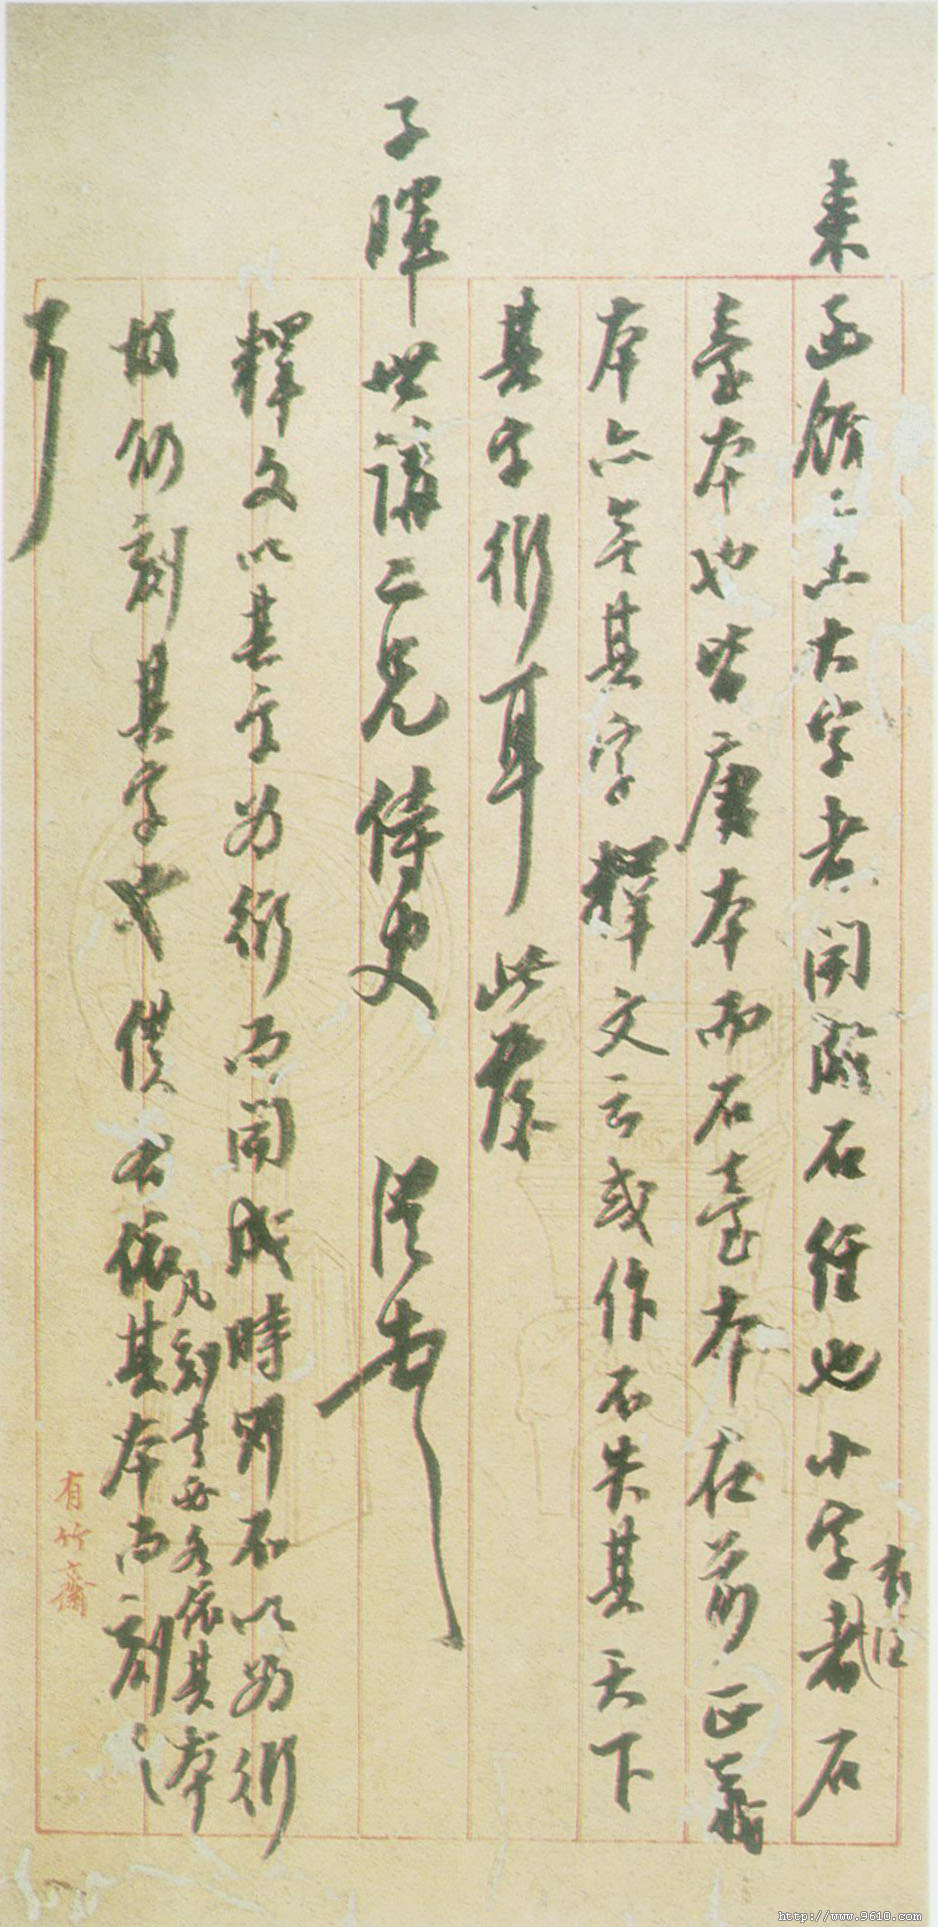 來函領二志大字者開成石經也小字有注者石
臺本也皆唐本而石臺本在前正義
本亦無其字釋文云或作不失其天下
其字衍耳此复
子暉世講二兄侍史 浞安
釋文以其字为衍而開成時則不以为衍
故仍刻其字也僕右依其本而刻之凡刻書必各依其本
耳
有竹齋
http://www.9610.com